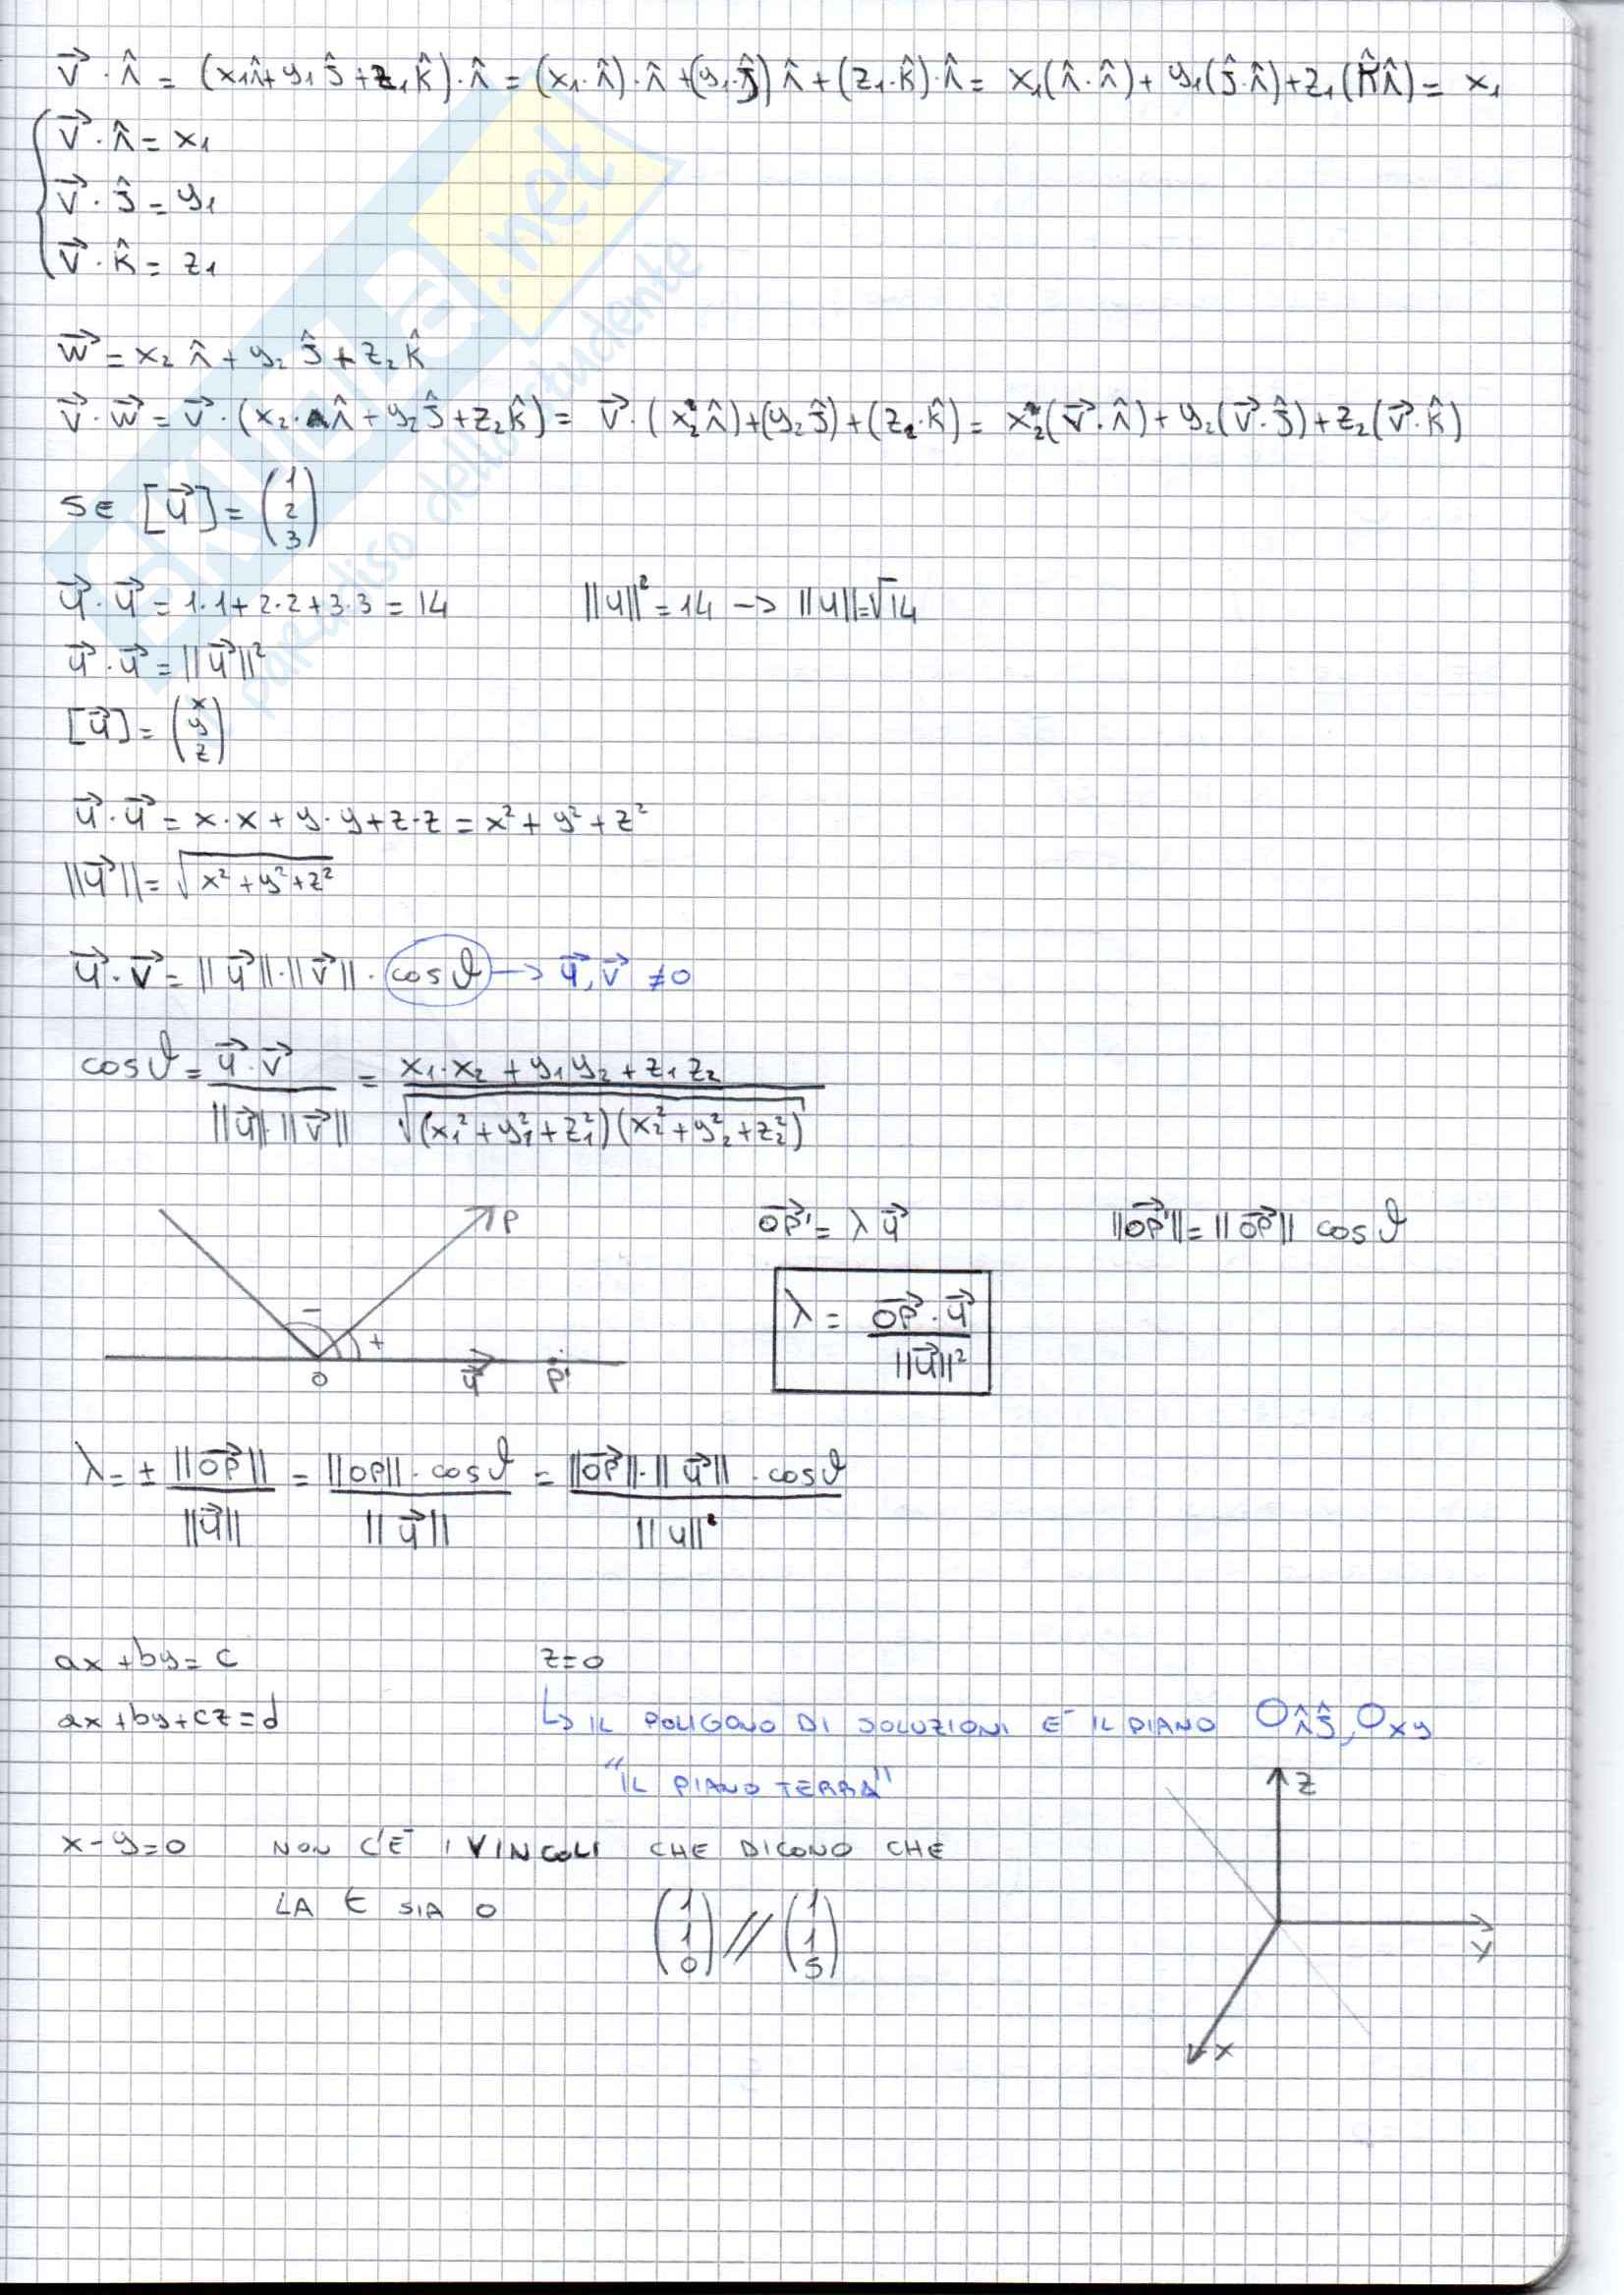 v⃗ · î = (x₁î + y₁ĵ + z₁k̂) · î = (x₁·î)·î + (y₁·ĵ) î + (z₁·k̂)·î = x₁(î·î) + y₁(ĵ·î) + z₁(k̂ î) = x₁
{ v⃗ · î = x₁
v⃗ · ĵ = y₁
v⃗ · k̂ = z₁
w⃗ = x₂ î + y₂ ĵ + z₂ k̂
v⃗ · w⃗ = v⃗ · (x₂·î + y₂ĵ + z₂k̂) = v⃗ · (x₂î) + (y₂ĵ) + (z₂·k̂) = x₂(v⃗·î) + y₂(v⃗·ĵ) + z₂(v⃗·k̂)
SE [u⃗] = (1 2 3)
u⃗ · u⃗ = 1·1 + 2·2 + 3·3 = 14 ||u||² = 14 → ||u|| = √14
u⃗ · u⃗ = ||u⃗||²
[u⃗] = (x y z)
u⃗ · u⃗ = x·x + y·y + z·z = x² + y² + z²
||u⃗|| = √(x² + y² + z²)
u⃗ · v⃗ = ||u⃗||·||v⃗|| · cos ϑ → u⃗, v⃗ ≠ 0
cos ϑ = u⃗·v⃗ / ||u⃗||·||v⃗|| = x₁·x₂ + y₁y₂ + z₁z₂ / √((x₁² + y₁² + z₁²)(x₂² + y₂² + z₂²))
P
OP⃗' = λ u⃗ ||OP⃗'|| = ||OP⃗|| cos ϑ
λ = OP⃗ · u⃗ / ||u⃗||²
− +
O u⃗ P'
λ = ± ||OP⃗|| / ||u⃗|| = ||OP|| · cos ϑ / ||u⃗|| = ||OP⃗||·||u⃗|| · cos ϑ / ||u||²
ax + by = c z = 0
ax + by + cz = d ↳ IL POLIGONO DI SOLUZIONI E' IL PIANO Oîĵ, Oxy
"IL PIANO TERRA"
z
x − y = 0 NON C'E' I VINCOLI CHE DICONO CHE
LA t SIA 0 (1 1 0) // (1 1 5)
y
x
SKUOLA.net
paradiso dello studente